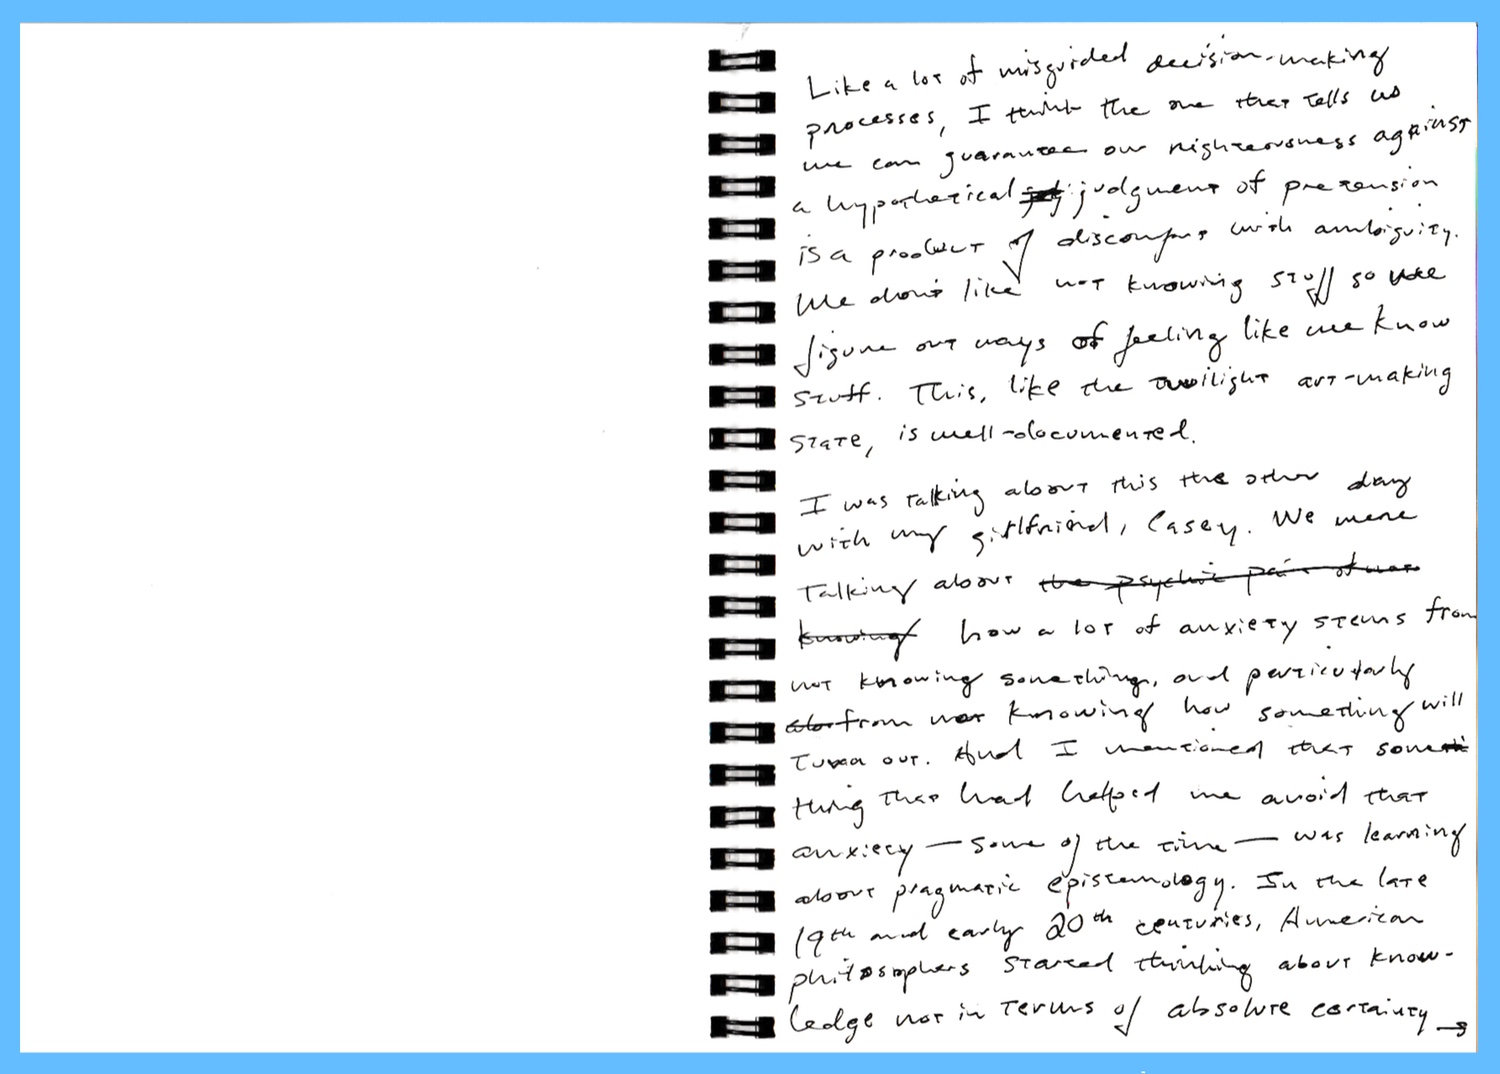 Like a lot of misguided decision-making
processes, I think the one that tells us
we can guarantee our righteousness against
a hypothetical judgment of pretension
is a product of discomfort with ambiguity.
We don't like not knowing stuff so we
figure out ways of feeling like we know
stuff. This, like the twilight art-making
state, is well-documented.
I was talking about this the other day
with my girlfriend, Casey. We were
talking about the psychic pain of not
knowing how a lot of anxiety stems from
not knowing something, and particularly
from not knowing how something will
turn out. And I mentioned that some
thing that had helped me avoid that
anxiety — some of the time — was learning
about pragmatic epistemology. In the late
19th and early 20th centuries, American
philosophers started thinking about know-
ledge not in terms of absolute certainty →